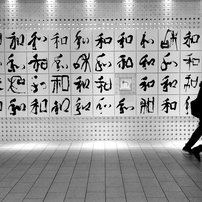 和和和和和和和和和
和和和和和和和和和
和和和和和和和和
和和和和和和和和